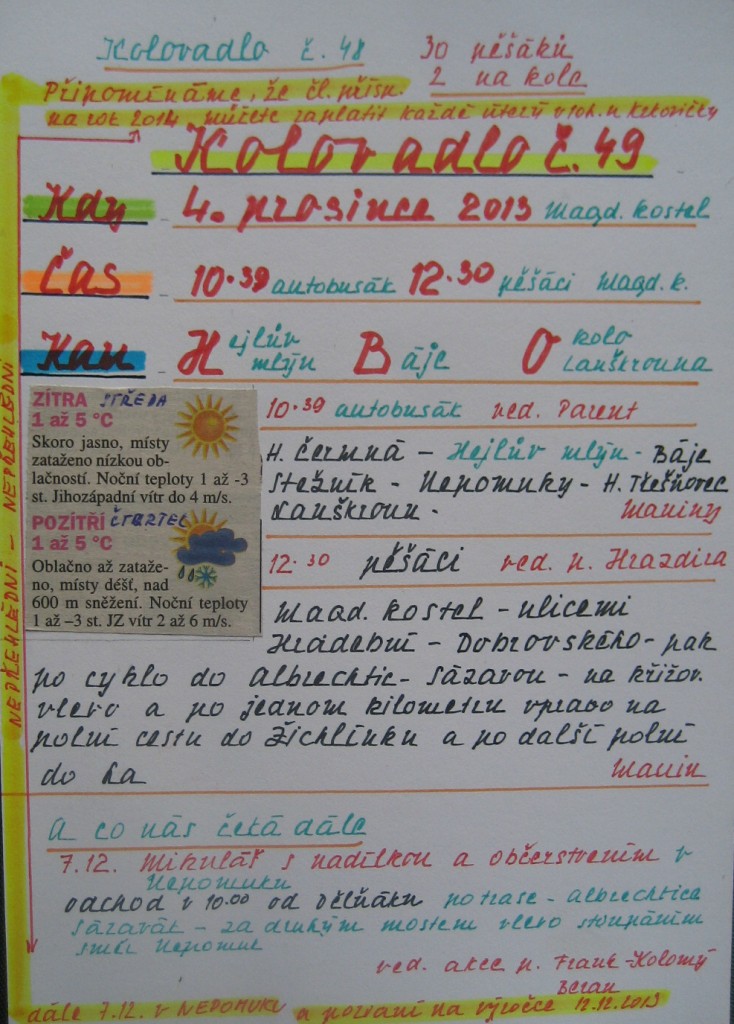 Kolovadlo č. 48
30 pěšáků
2 na kole
Připomínáme, že čl. přísp.
na rok 2014 můžete zaplatit každé úterý v loh. u Kekovičky
Kolovadlo č. 49
Kdy 4. prosince 2013 Magd. kostel
Čas 10.39 autobusák 12.30 pěšáci Magd. k.
Kam Hejlův mlýn Báje Okolo Lanškrouna
NEPŘEHLÉDNI – NEPŘEHLÉDNI
ZÍTRA STŘEDA
1 až 5 °C
Skoro jasno, místy
zataženo nízkou ob-
lačností. Noční teploty 1 až -3
st. Jihozápadní vítr do 4 m/s.
POZÍTŘÍ ČTVRTEC
1 až 5 °C
Oblačno až zataže-
no, místy déšť, nad
600 m sněžení. Noční teploty
1 až –3 st. JZ vítr 2 až 6 m/s.
10.39 autobusák ved. Parent
H. Čermná – Hejlův mlýn - Báje
Stežník - Nepomuky - H. Třešňovec
Lanškroun - Maviny
12.30 pěšáci ved. p. Hrazdira
Magd. kostel – ulicemi
Hradební – Dobrovského - pak
po cyklo do Albrechtic - Sázavou - na křižov.
vlevo a po jednom kilometru vpravo na
polní cestu do Žichlínku a po další polní
do La Mavin
A co nás čeká dále
7.12. Mikulář s nadílkou a občerstvením v
Nepomuku
odchod v 10.00 od Dělňáku po trase - Albrechtice
Sázavák - za druhým mostem vlevo stoupáním
směr Nepomuk
ved. akce p. Frank - Kolomý
Beran
dále 7.12. v NEPOMUKU a pozvaní na výročce 12.12.2013